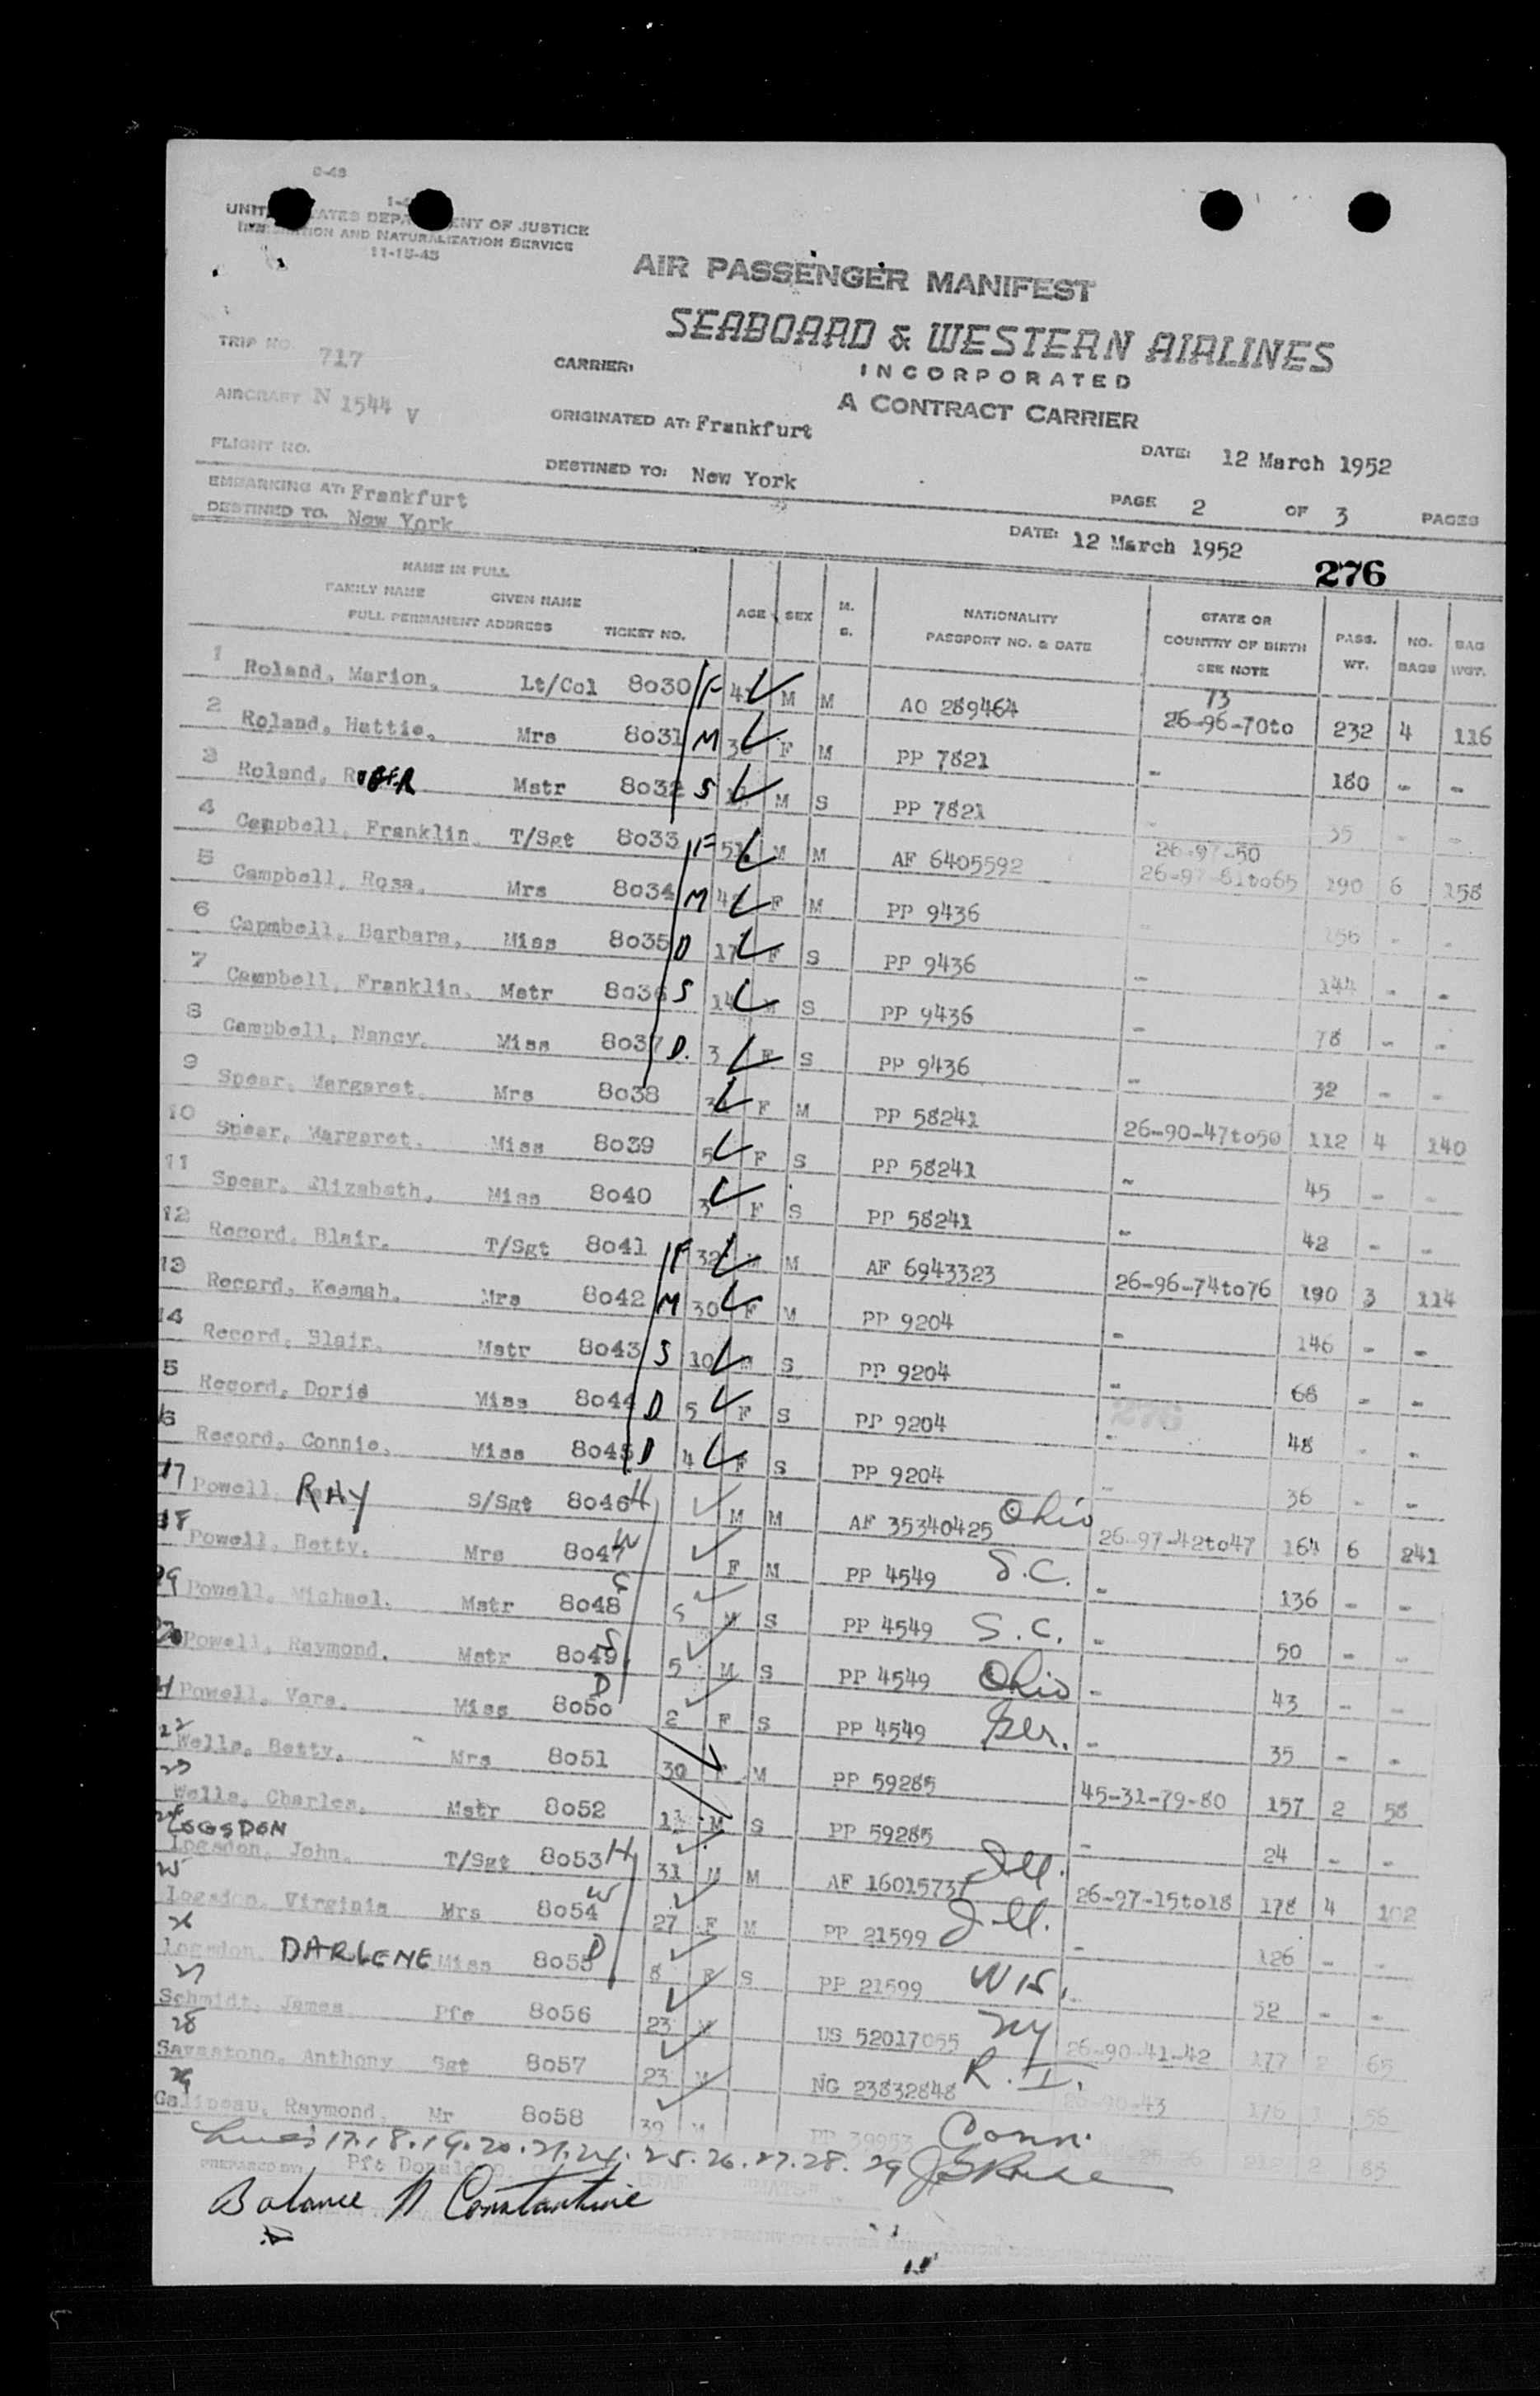 UNITED STATES DEPARTMENT OF JUSTICE
IMMIGRATION AND NATURALIZATION SERVICE
11-15-45
AIR PASSENGER MANIFEST
SEABOARD & WESTERN AIRLINES
INCORPORATED
A CONTRACT CARRIER
TRIP NO. 717
CARRIER:
AIRCRAFT N 1544 V
ORIGINATED AT: Frankfurt
DATE: 12 March 1952
FLIGHT NO.
DESTINED TO: New York
PAGE 2 OF 3 PAGES
EMBARKING AT: Frankfurt
DESTINED TO. New York
DATE: 12 March 1952
276
NAME IN FULL
FAMILY NAME GIVEN NAME
FULL PERMANENT ADDRESS TICKET NO. AGE SEX M. S. NATIONALITY PASSPORT NO. & DATE STATE OR COUNTRY OF BIRTH SEE NOTE PASS. WT. NO. BAGS BAG WGT.
1 Roland, Marion, Lt/Col 8030 F M M AO 289464 73 26-96-70to 232 4 116
2 Roland, Hattie, Mrs 8031 M F M PP 7821 - 180 - -
3 Roland, ROGER Mstr 8032 S M S PP 7821 - 35 - -
4 Campbell, Franklin. T/Sgt 8033 F 51 M M AF 6405592 26-97-50 26-97-61to65 190 6 158
5 Campbell, Rosa, Mrs 8034 M 42 F M PP 9436 - 156 - -
6 Capmbell, Barbara, Miss 8035 D 17 F S PP 9436 - 144 - -
7 Campbell, Franklin. Mstr 8036 S 14 M S PP 9436 - 78 - -
8 Campbell, Nancy. Miss 8037 D. 3 F S PP 9436 - 32 - -
9 Spear, Margaret. Mrs 8038 F M PP 58241 26-90-47to50 112 4 140
10 Spear, Margaret. Miss 8039 5 F S PP 58241 - 45 - -
11 Spear, Elizabeth, Miss 8040 3 F S PP 58241 - 42 - -
12 Record, Blair. T/Sgt 8041 F 32 M M AF 6943323 26-96-74to76 190 3 114
13 Record, Keemah, Mrs 8042 M 30 F M PP 9204 - 146 - -
14 Record, Blair. Mstr 8043 S 10 M S PP 9204 - 68 - -
15 Record, Doris Miss 8044 D 5 F S PP 9204 - 48 - -
16 Record, Connie, Miss 8045 D 4 F S PP 9204 - 36 - -
17 Powell, RAY S/Sgt 8046 H M M AF 35340425 Ohio 26-97-42to47 164 6 241
18 Powell, Betty. Mrs 8047 W F M PP 4549 S.C. - 136 - -
19 Powell, Michael. Mstr 8048 S 5 M S PP 4549 S.C. - 50 - -
20 Powell, Raymond. Mstr 8049 S 5 M S PP 4549 Ohio - 43 - -
21 Powell, Vera. Miss 8050 D 2 F S PP 4549 Ger. - 35 - -
22 Wells, Betty. Mrs 8051 30 F M PP 59285 45-31-79-80 157 2 58
23 Wells, Charles. Mstr 8052 M S PP 59285 - 24 - -
24 LOGSDON Logsdon, John. T/Sgt 8053 H 31 M M AF 16015737 Ill. 26-97-15to18 178 4 102
25 Logsdon, Virginia Mrs 8054 W 27 F M PP 21599 Ill. - 126 - -
26 Logsdon, DARLENE Miss 8055 D 8 F S PP 21599 Wis. - 52 - -
27 Schmidt, James Pfc 8056 23 M US 52017055 NY 26-90-41-42 177 2 65
28 Savastono, Anthony Sgt 8057 23 M NG 23832848 R.I. 26-90-43 176 56
29 Galipeau, Raymond. Mr 8058 39 M PP 39953 Conn. 2 85
Lines 17.18.19.20.21.24.25.26.27.28.29
PREPARED BY: Pfc Donald
Balance N Constantine